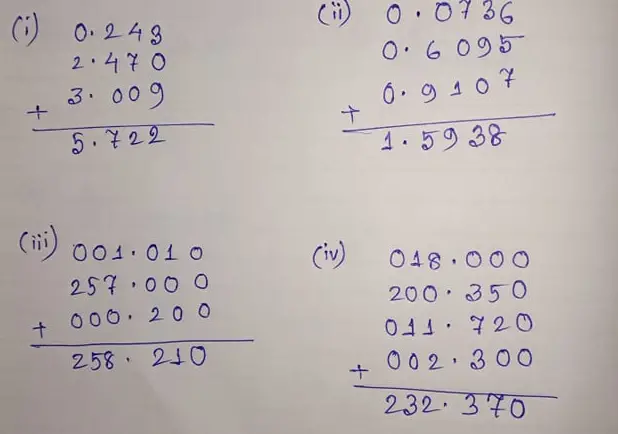 (i) 0.243
2.470
+ 3.009
5.722
(ii) 0.0736
0.6095
+ 0.9107
1.5938
(iii) 001.010
257.000
+ 000.200
258.210
(iv) 018.000
200.350
011.720
+ 002.300
232.370